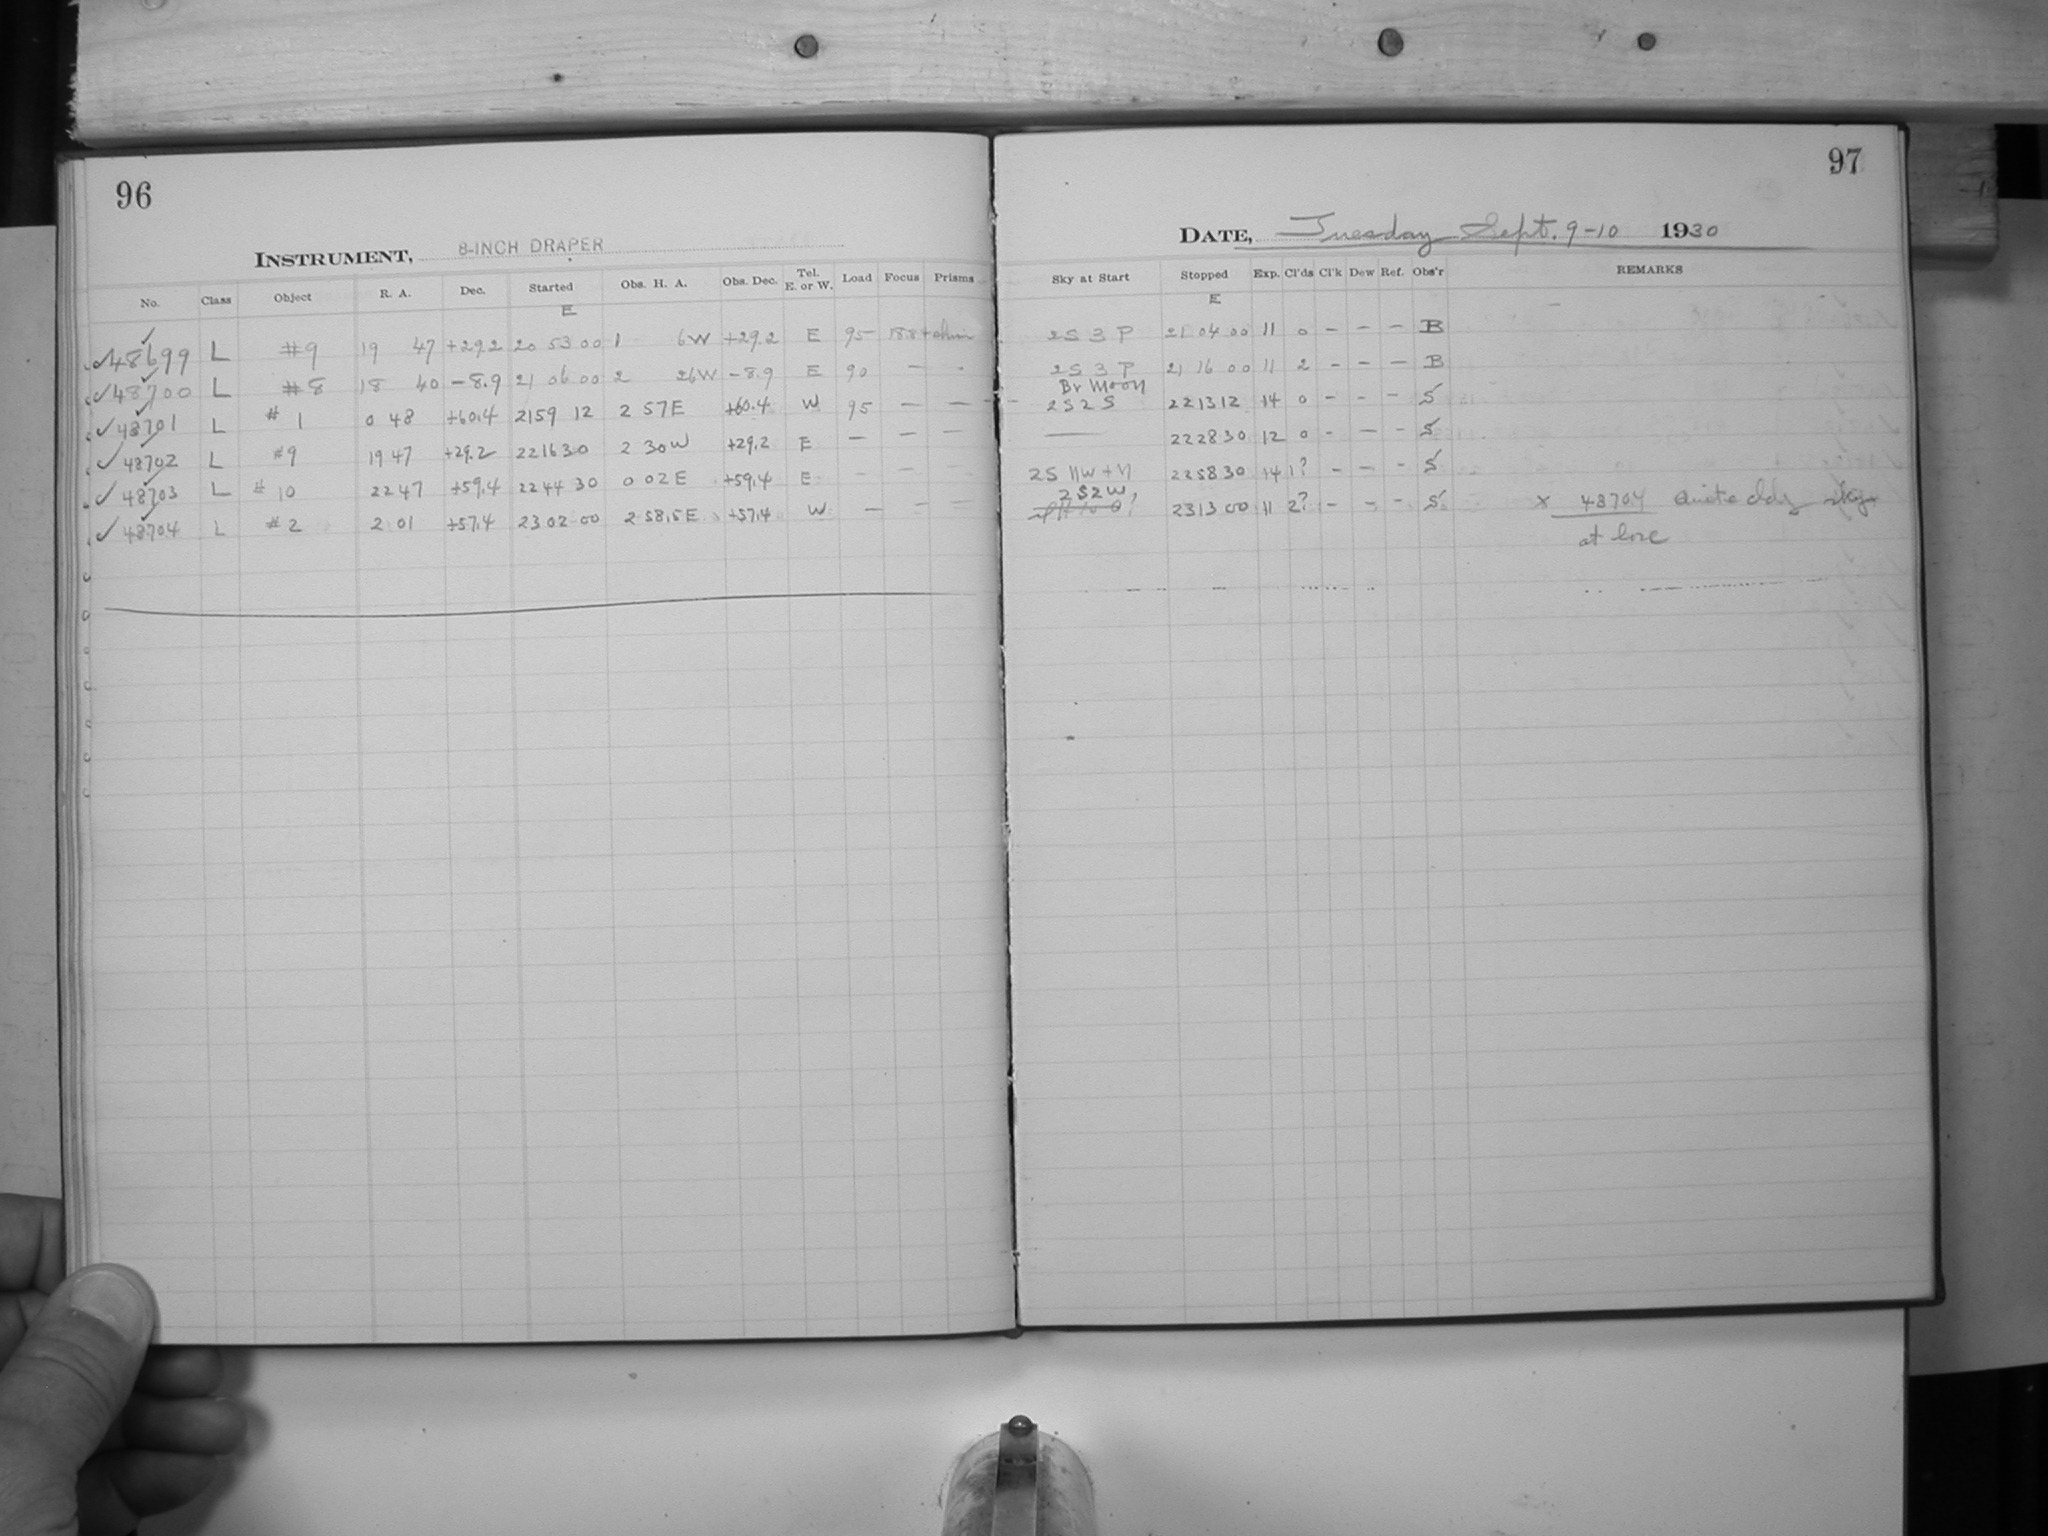 96
INSTRUMENT, 8-INCH DRAPER
No. Class Object R. A. Dec. Started Obs. H. A. Obs. Dec. Tel. E. or W. Load Focus Prisms
E
✓48699 L #9 19 47 +29.2 20 53 00 1 6W +29.2 E 95
✓48700 L #8 18 40 -8.9 21 06 00 2 26W -8.9 E 90 - -
✓48701 L #1 0 48 +60.4 21 59 12 2 57E +60.4 W 95 - -
✓48702 L #9 19 47 +29.2 22 16 30 2 30W +29.2 E - - -
✓48703 L #10 22 47 +59.4 22 44 30 0 02E +59.4 E - - -
✓48704 L #2 2 01 +57.4 23 02 00 2 58.5E +57.4 W - - -
97
DATE, Tuesday Sept. 9-10 1930
Sky at Start Stopped Exp. Cl'ds Cl'k Dew Ref. Obs'r REMARKS
E
2S 3 P 21 04 00 11 0 - - - B
2S 3 P 21 16 00 11 2 - - - B
Br Moon
2S2S 22 13 12 14 0 - - - S
— 22 28 30 12 0 - - - S
2S 22 58 30 14 1? - - - S
2S2W, 23 13 00 11 2? - - - S x 48704 Quite cldy sky
at